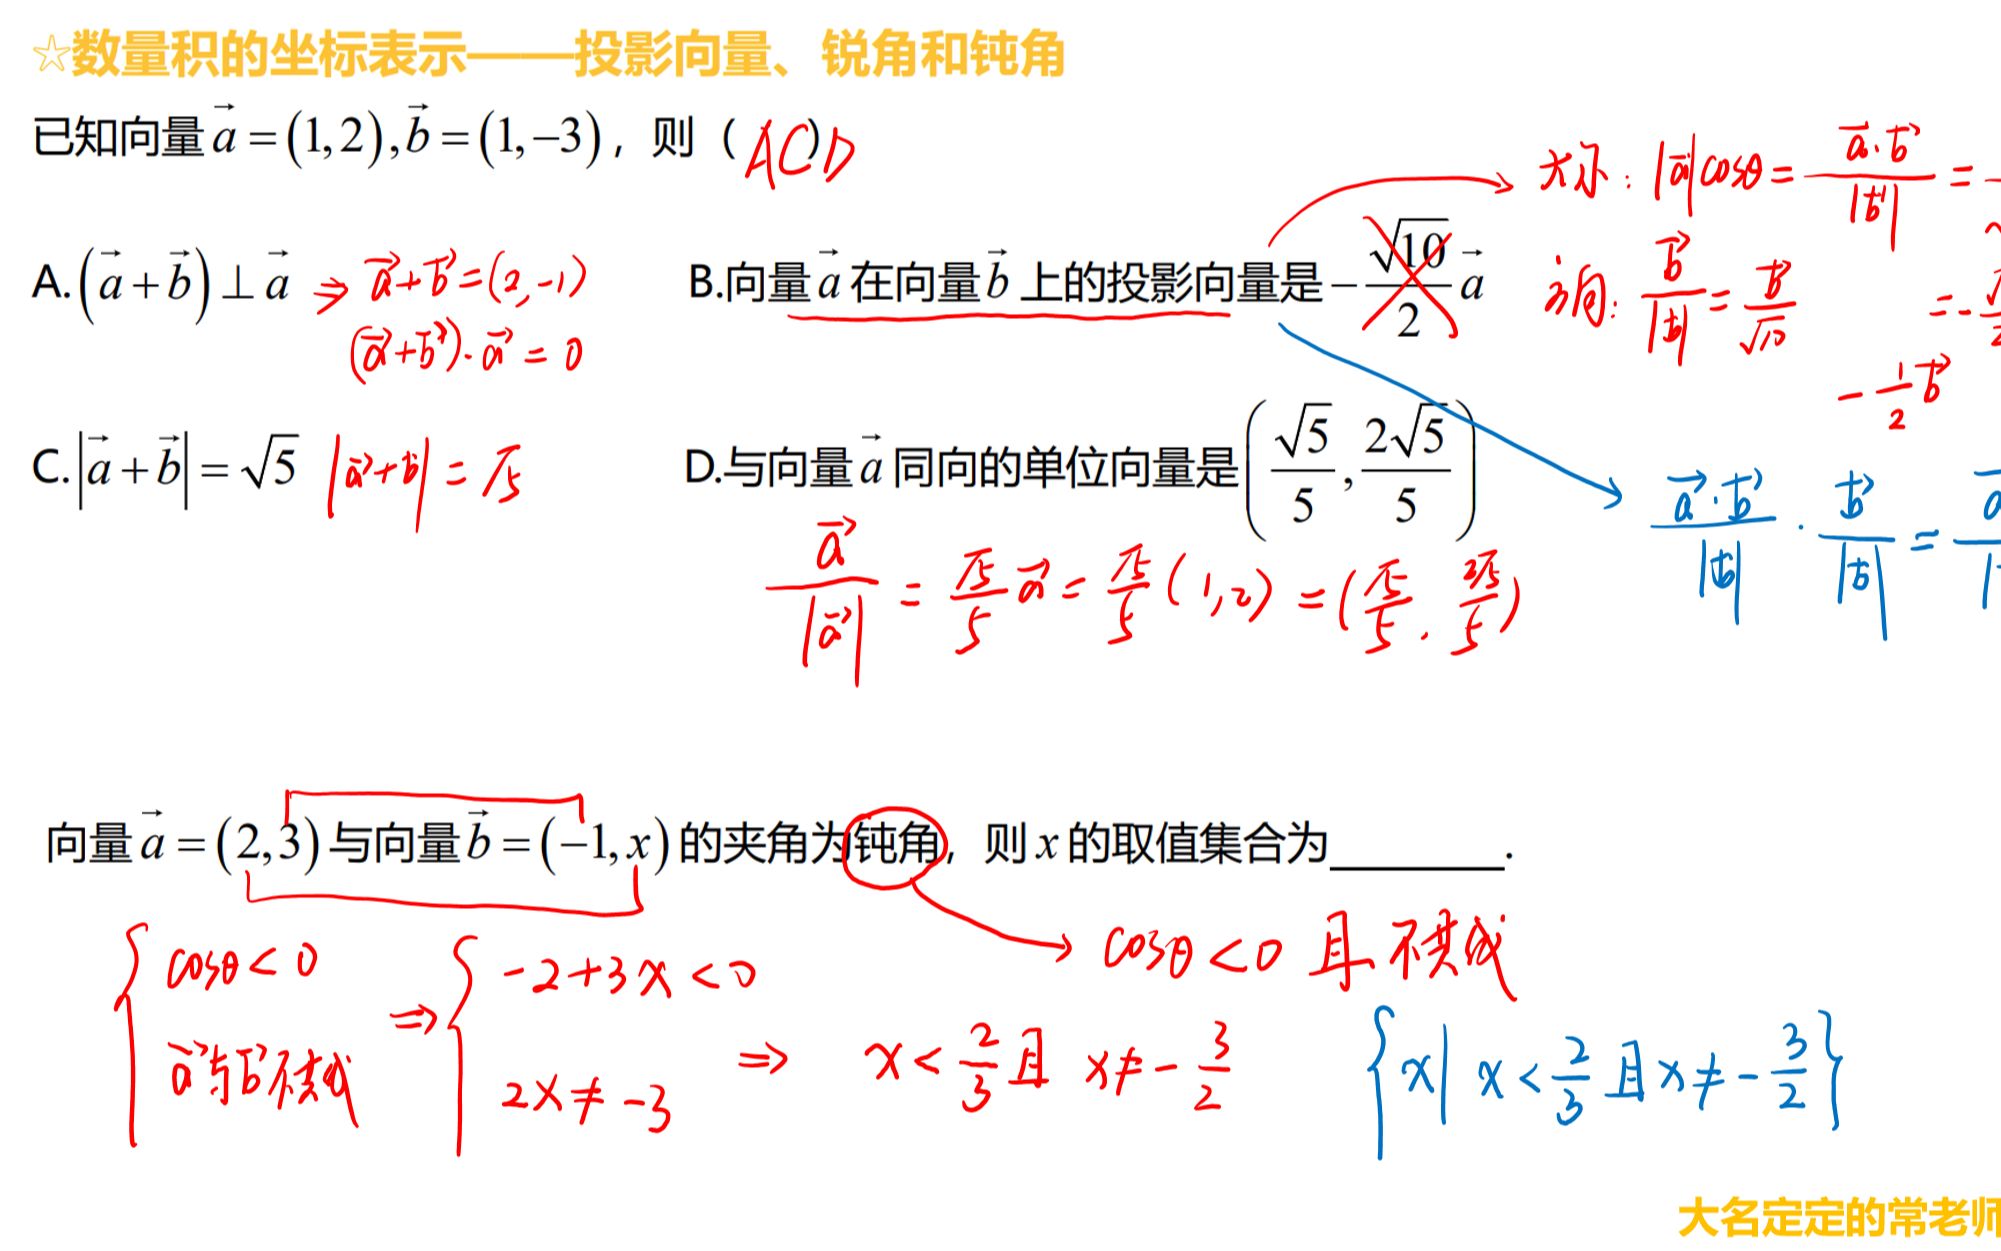 ☆数量积的坐标表示——投影向量、锐角和钝角
已知向量 a⃗ = (1,2), b⃗ = (1,−3)，则（ACD）
A.(a⃗ + b⃗) ⊥ a⃗ ⇒ a⃗+b⃗=(2,-1)
(a⃗+b⃗)·a⃗ = 0
B.向量 a⃗ 在向量 b⃗ 上的投影向量是 −√10/2 a⃗
大小: |a⃗|cosθ = a⃗·b⃗/|b⃗| =
方向: b⃗/|b⃗| = b⃗/√10
= -
-1/2 b⃗
C.|a⃗ + b⃗| = √5 |a⃗+b⃗| = √5
D.与向量 a⃗ 同向的单位向量是 (√5/5, 2√5/5)
a⃗·b⃗/|b⃗| · b⃗/|b⃗| =
a⃗/|a⃗| = √5/5 a⃗ = √5/5 (1,2) = (√5/5, 2√5/5)
向量 a⃗ = (2,3) 与向量 b⃗ = (−1, x) 的夹角为钝角，则 x 的取值集合为________.
cosθ<0 且 不共线
{ cosθ<0 ⇒ { -2+3x<0
a⃗与b⃗不共线 2x≠-3
⇒ x<2/3 且 x≠-3/2
{x| x<2/3 且 x≠-3/2}
大名定定的常老师